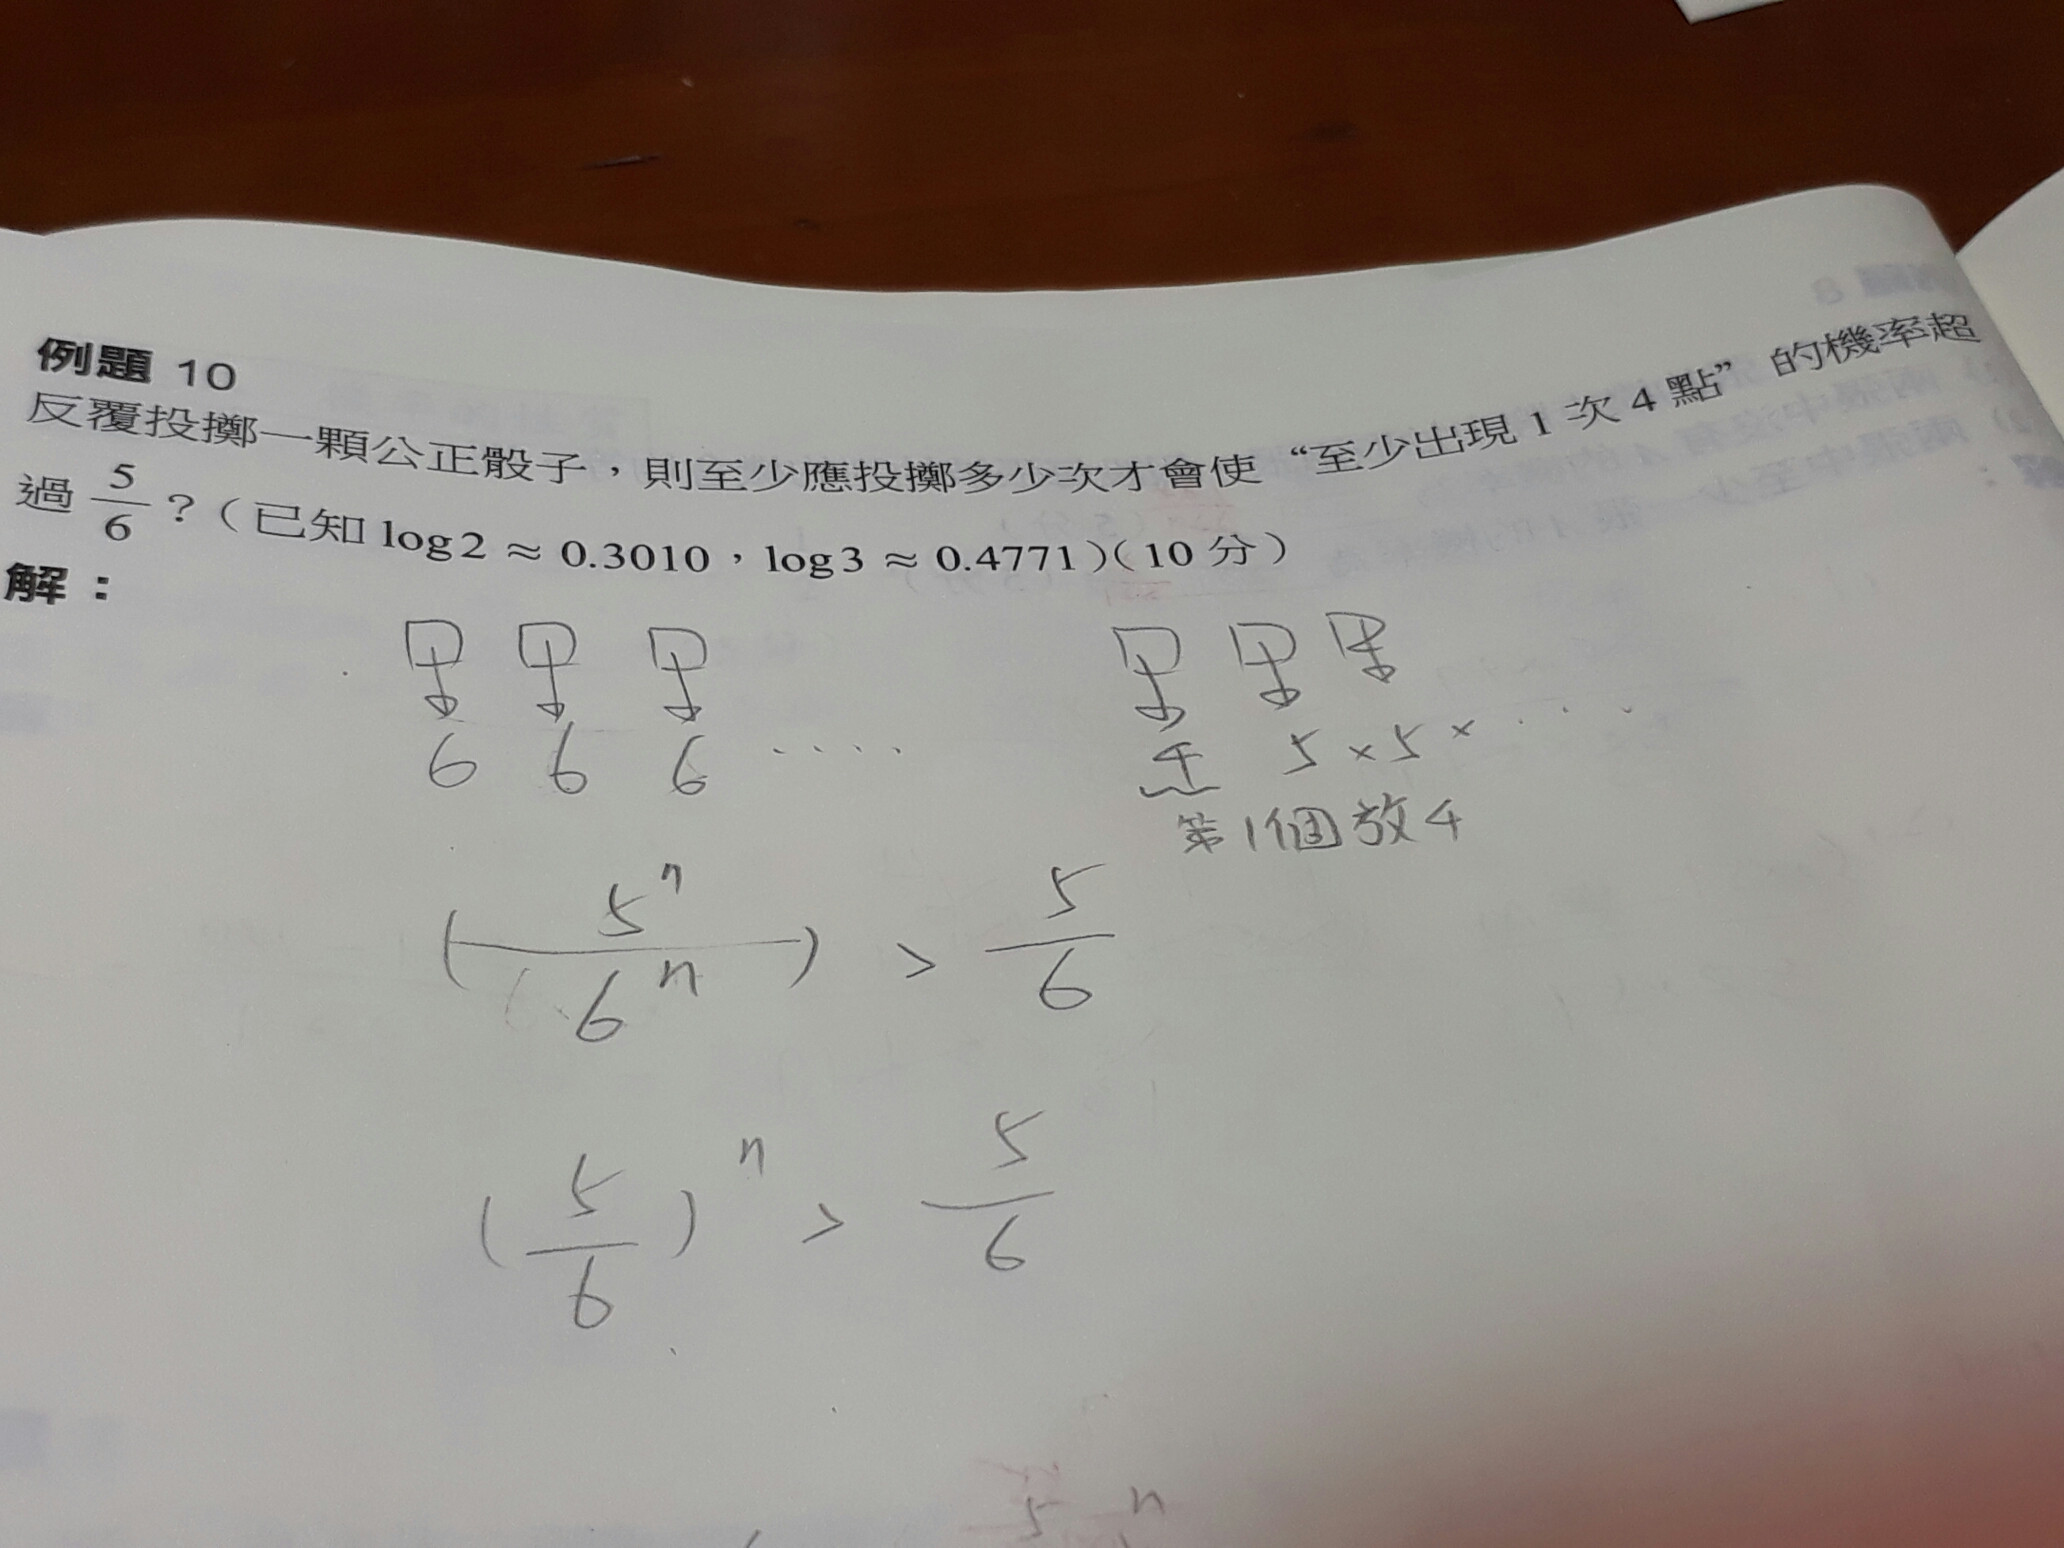 例題 10
反覆投擲一顆公正骰子，則至少應投擲多少次才會使 “至少出現 1 次 4 點” 的機率超
過 5/6 ?（已知 log2 ≈ 0.3010，log3 ≈ 0.4771）（10 分）
解：
6 6 6 ....
4 5 × 5 × ....
第1個放4
(5^n / 6^n) > 5/6
(5/6)^n > 5/6
5 n